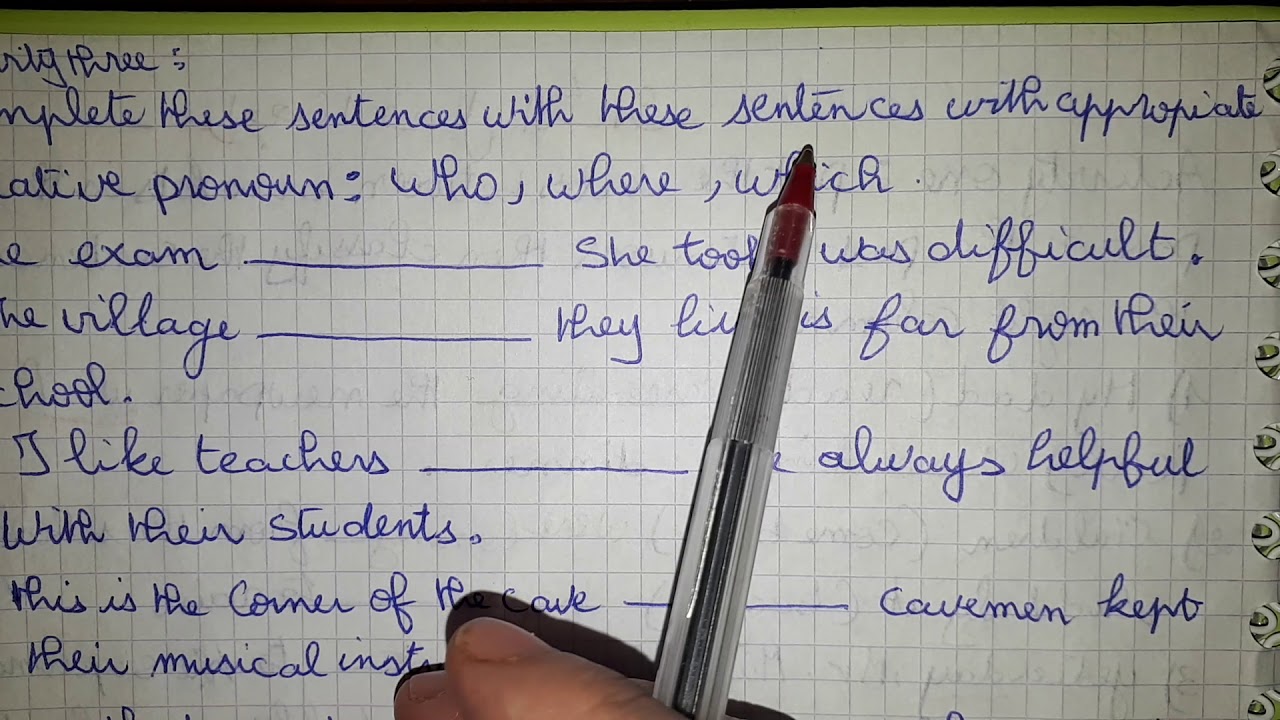 rity three:
mplete these sentences with these sentences with appropiate
ative pronoun: who, where, which.
e exam ___ She took was difficult.
he village ___ they li is far from their
chool.
I like teachers ___ always helpful
with their students.
this is the Corner of the cave ___ cavemen kept
their musical inst